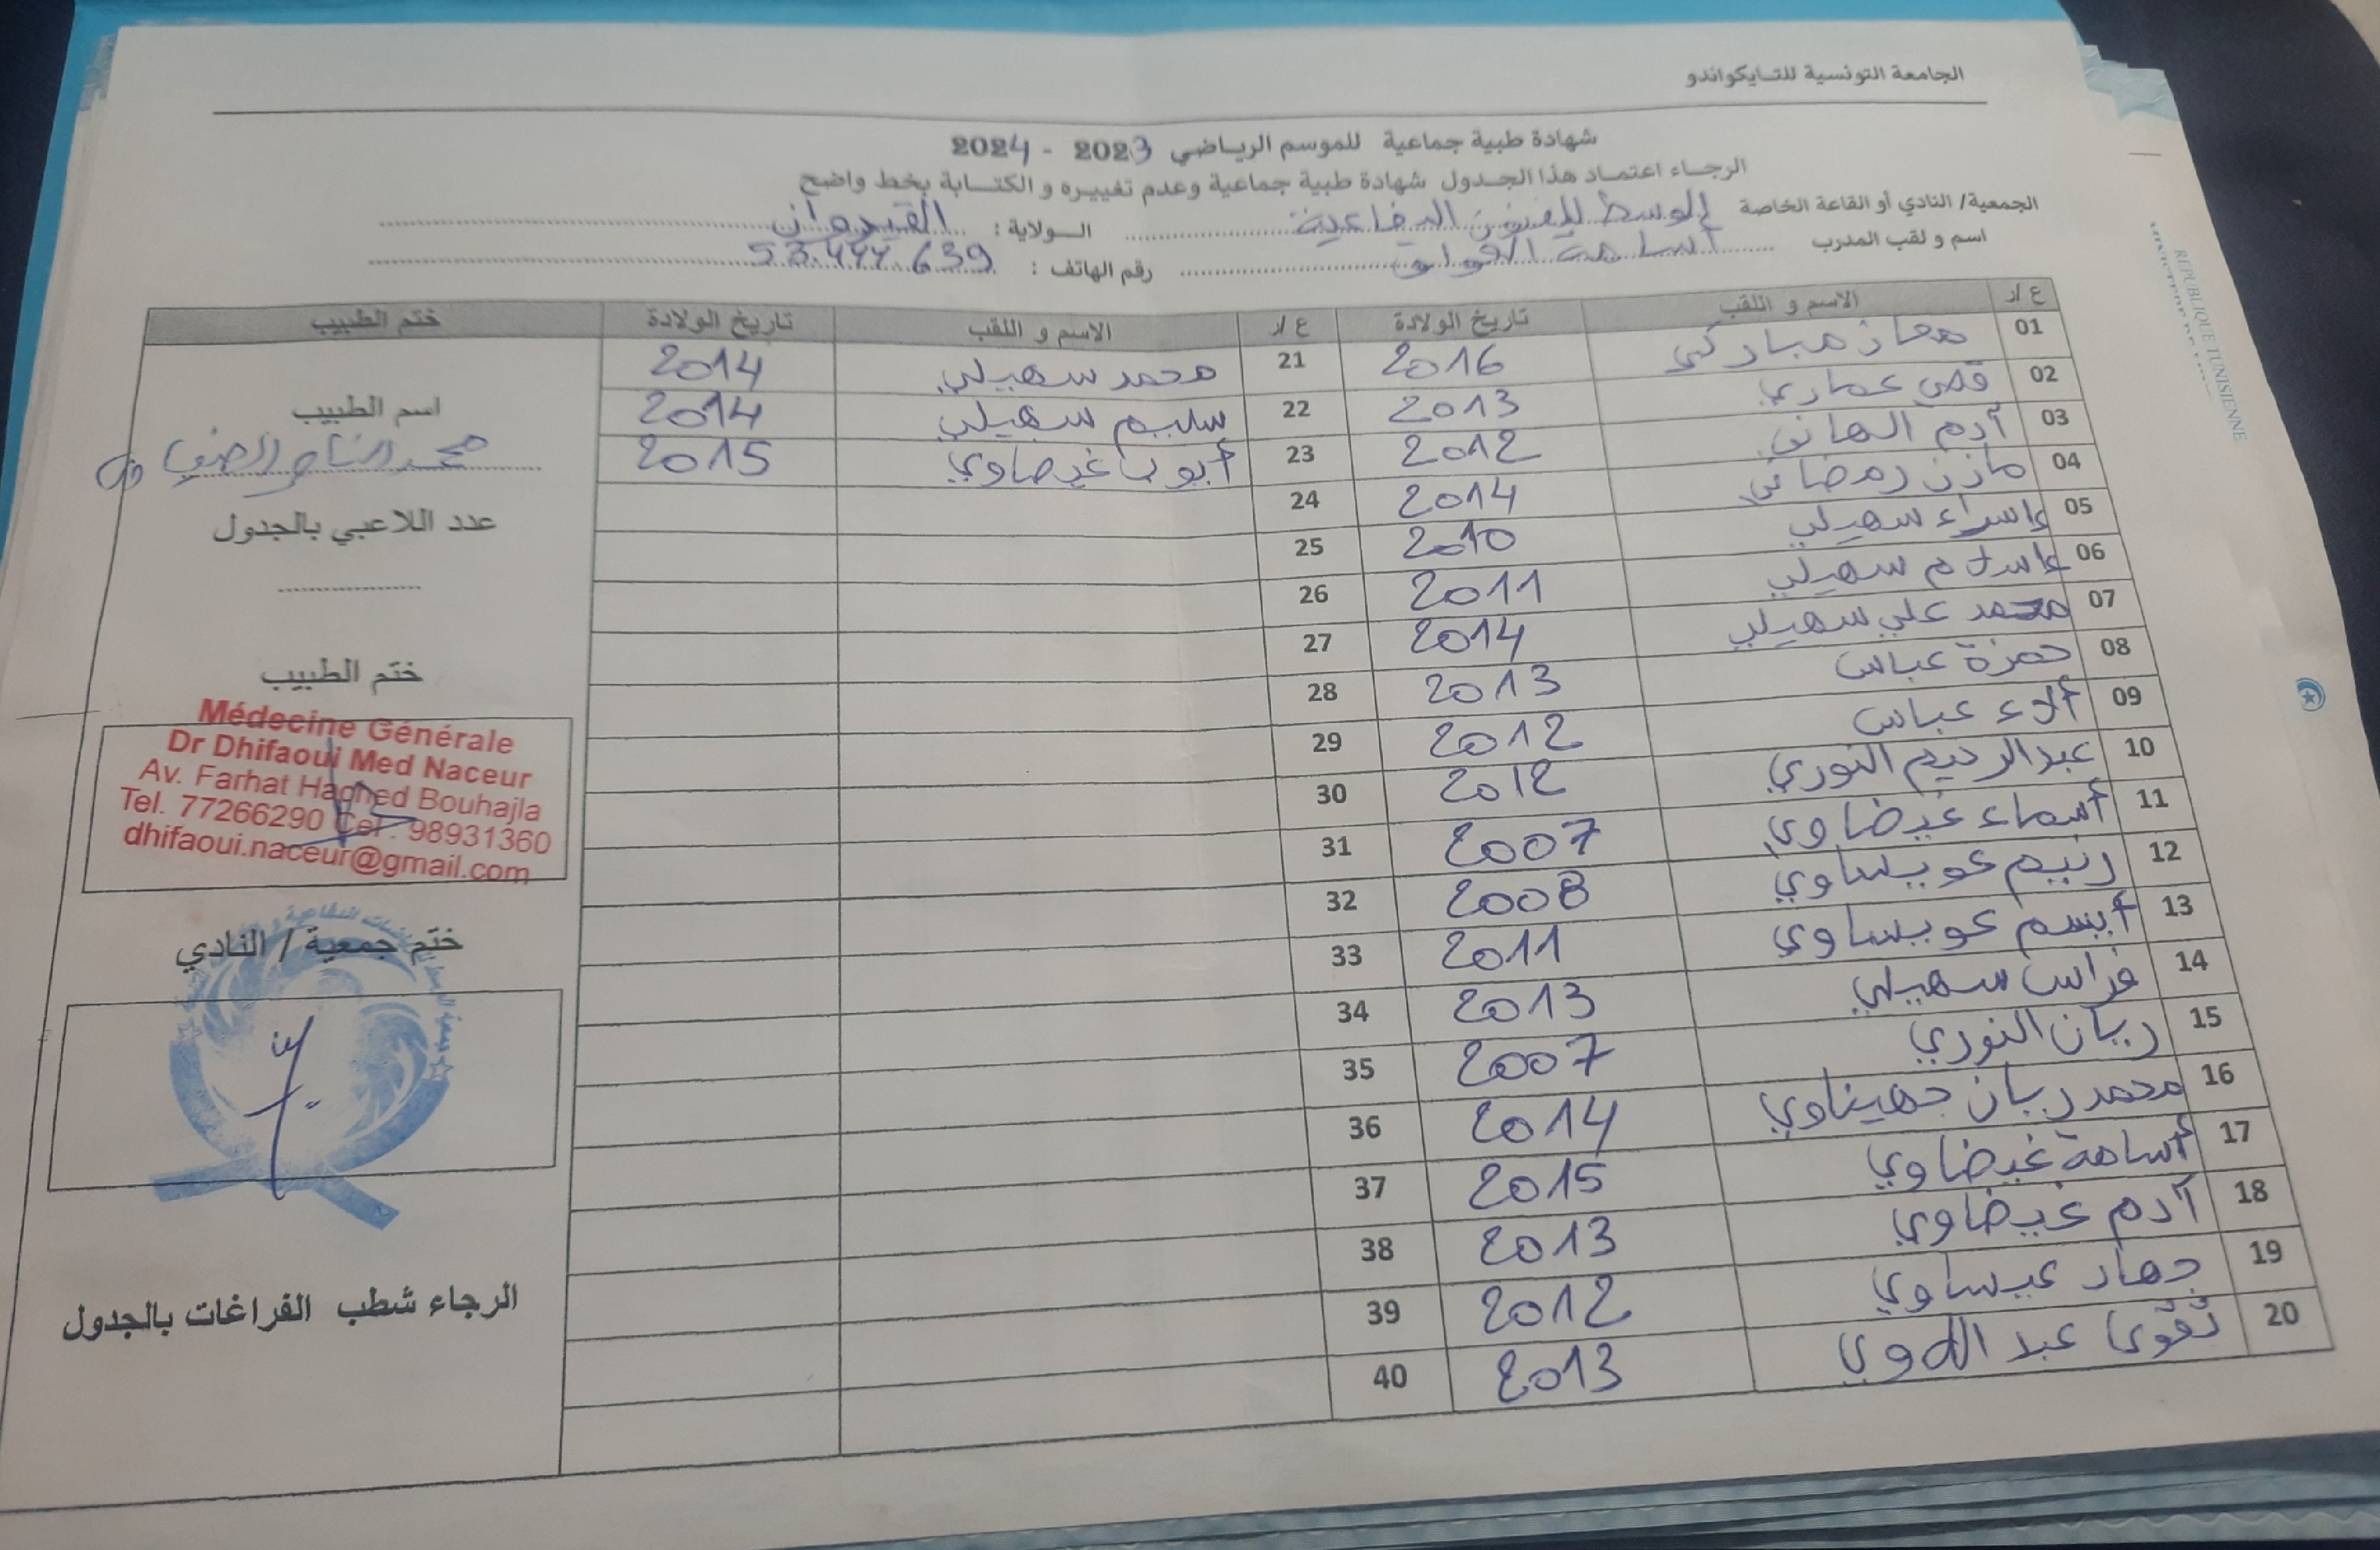 الجامعة التونسية للتايكواندو
شهادة طبية جماعية للموسم الرياضي 2023 - 2024
الرجاء اعتماد هذا الجدول شهادة طبية جماعية وعدم تغييره و الكتابة بخط واضح
الجمعية/ النادي أو القاعة الخاصة الوسط للفنون الدفاعية الولاية : القيروان
اسم و لقب المدرب أسامة رقم الهاتف : 53.477.639
ع/د الاسم و اللقب تاريخ الولادة ع/د الاسم و اللقب تاريخ الولادة ختم الطبيب
01 معاذ مباركي 2016 21 محمد سهيلي 2014
02 قصي عماري 2013 22 سليم سهيلي 2014
03 آدم الهاني 2012 23 أيوب غيضاوي 2015
04 مازن رمضاني 2014 24
05 إسراء سهيلي 2010 25
06 إسلام سهيلي 2011 26
07 محمد علي سهيلي 2014 27
08 حمزة عباس 2013 28
09 ألاء عباس 2012 29
10 عبد الرحيم النوري 2012 30
11 أسماء غيضاوي 2007 31
12 رنيم عويساوي 2008 32
13 أبسم عويساوي 2011 33
14 فراس سهيلي 2013 34
15 ريان النوري 2007 35
16 محمد ريان جهيناوي 2014 36
17 أسامة غيضاوي 2015 37
18 آدم غيضاوي 2013 38
19 جهاد عيساوي 2012 39
20 تقوى 2013 40
اسم الطبيب
محمد الناصر الضيفاوي
عدد اللاعبي بالجدول
ختم الطبيب
Médecine Générale
Dr Dhifaoui Med Naceur
Av. Farhat Hached Bouhajla
Tel. 77266290 Cel : 98931360
dhifaoui.naceur@gmail.com
ختم جمعية / النادي
الرجاء شطب الفراغات بالجدول
REPUBLIQUE TUNISIENNE